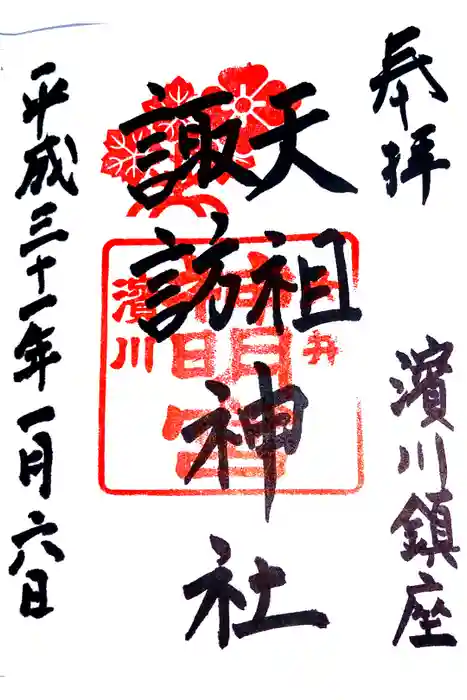 奉拝
濱川鎮座
天祖
諏訪
神社
濱川
神明宮
平成三十一年一月六日